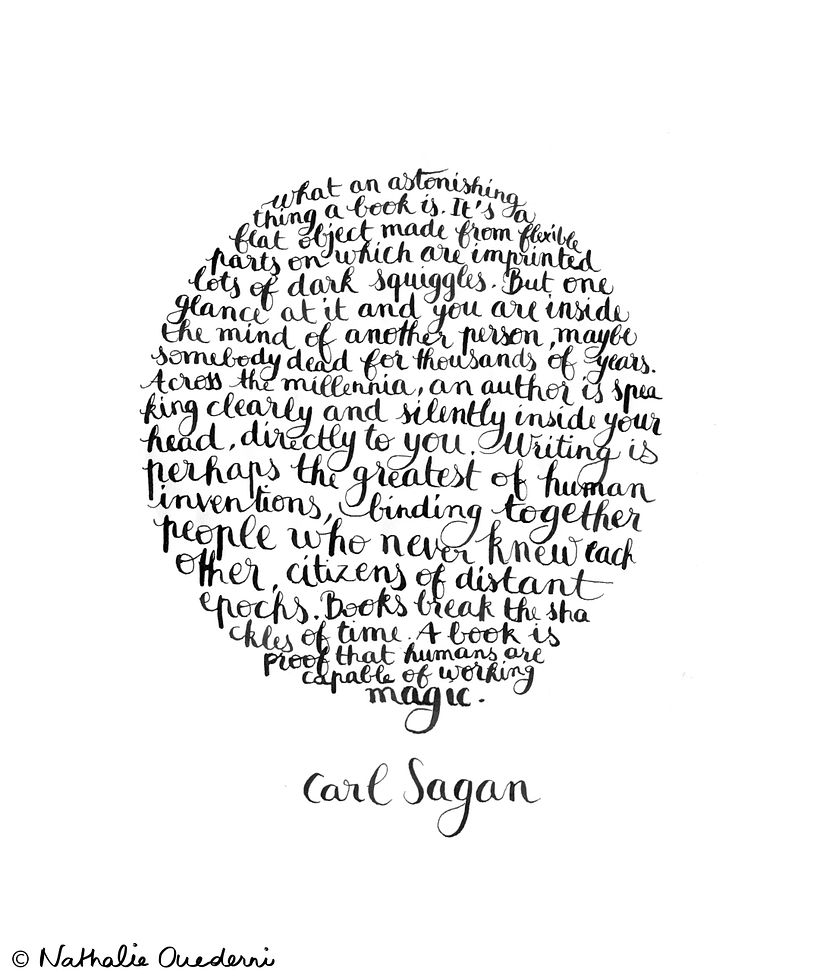 what an astonishing
thing a book is. It's a
flat object made from flexible
parts on which are imprinted
lots of dark squiggles. But one
glance at it and you are inside
the mind of another person, maybe
somebody dead for thousands of years.
Across the millennia, an author is spea
king clearly and silently inside your
head, directly to you. Writing is
perhaps the greatest of human
inventions, binding together
people who never knew each
other, citizens of distant
epochs. Books break the sha
ckles of time. A book is
proof that humans are
capable of working
magic.
Carl Sagan
© Nathalie Ouederni